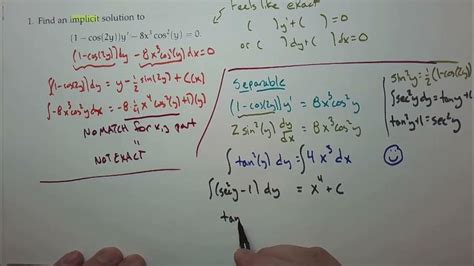 1. Find an implicit solution to
(1 − cos(2y))y' − 8x³ cos²(y) = 0.
feels like exact
( )y' + ( ) = 0
or ( )dy + ( )dx = 0
(1-cos(2y))dy - 8x³cos²(y)dx = 0
∫1-cos(2y)dy = y - ½sin(2y) + C(x)
∫-8x³cos²y dx = -8·¼x⁴cos²(y) + C(y)
NO MATCH for x,y part
"
NOT EXACT
Separable
(1-cos(2y))y' = 8x³cos²y
2sin²(y) dy/dx = 8x³cos²y
∫tan²(y)dy = ∫4x³dx
∫(sec²y-1)dy = x⁴+C
tan
sin²y = ½(1-cos(2y))
∫sec²y dy = tan y + C
tan²y+1 = sec²y